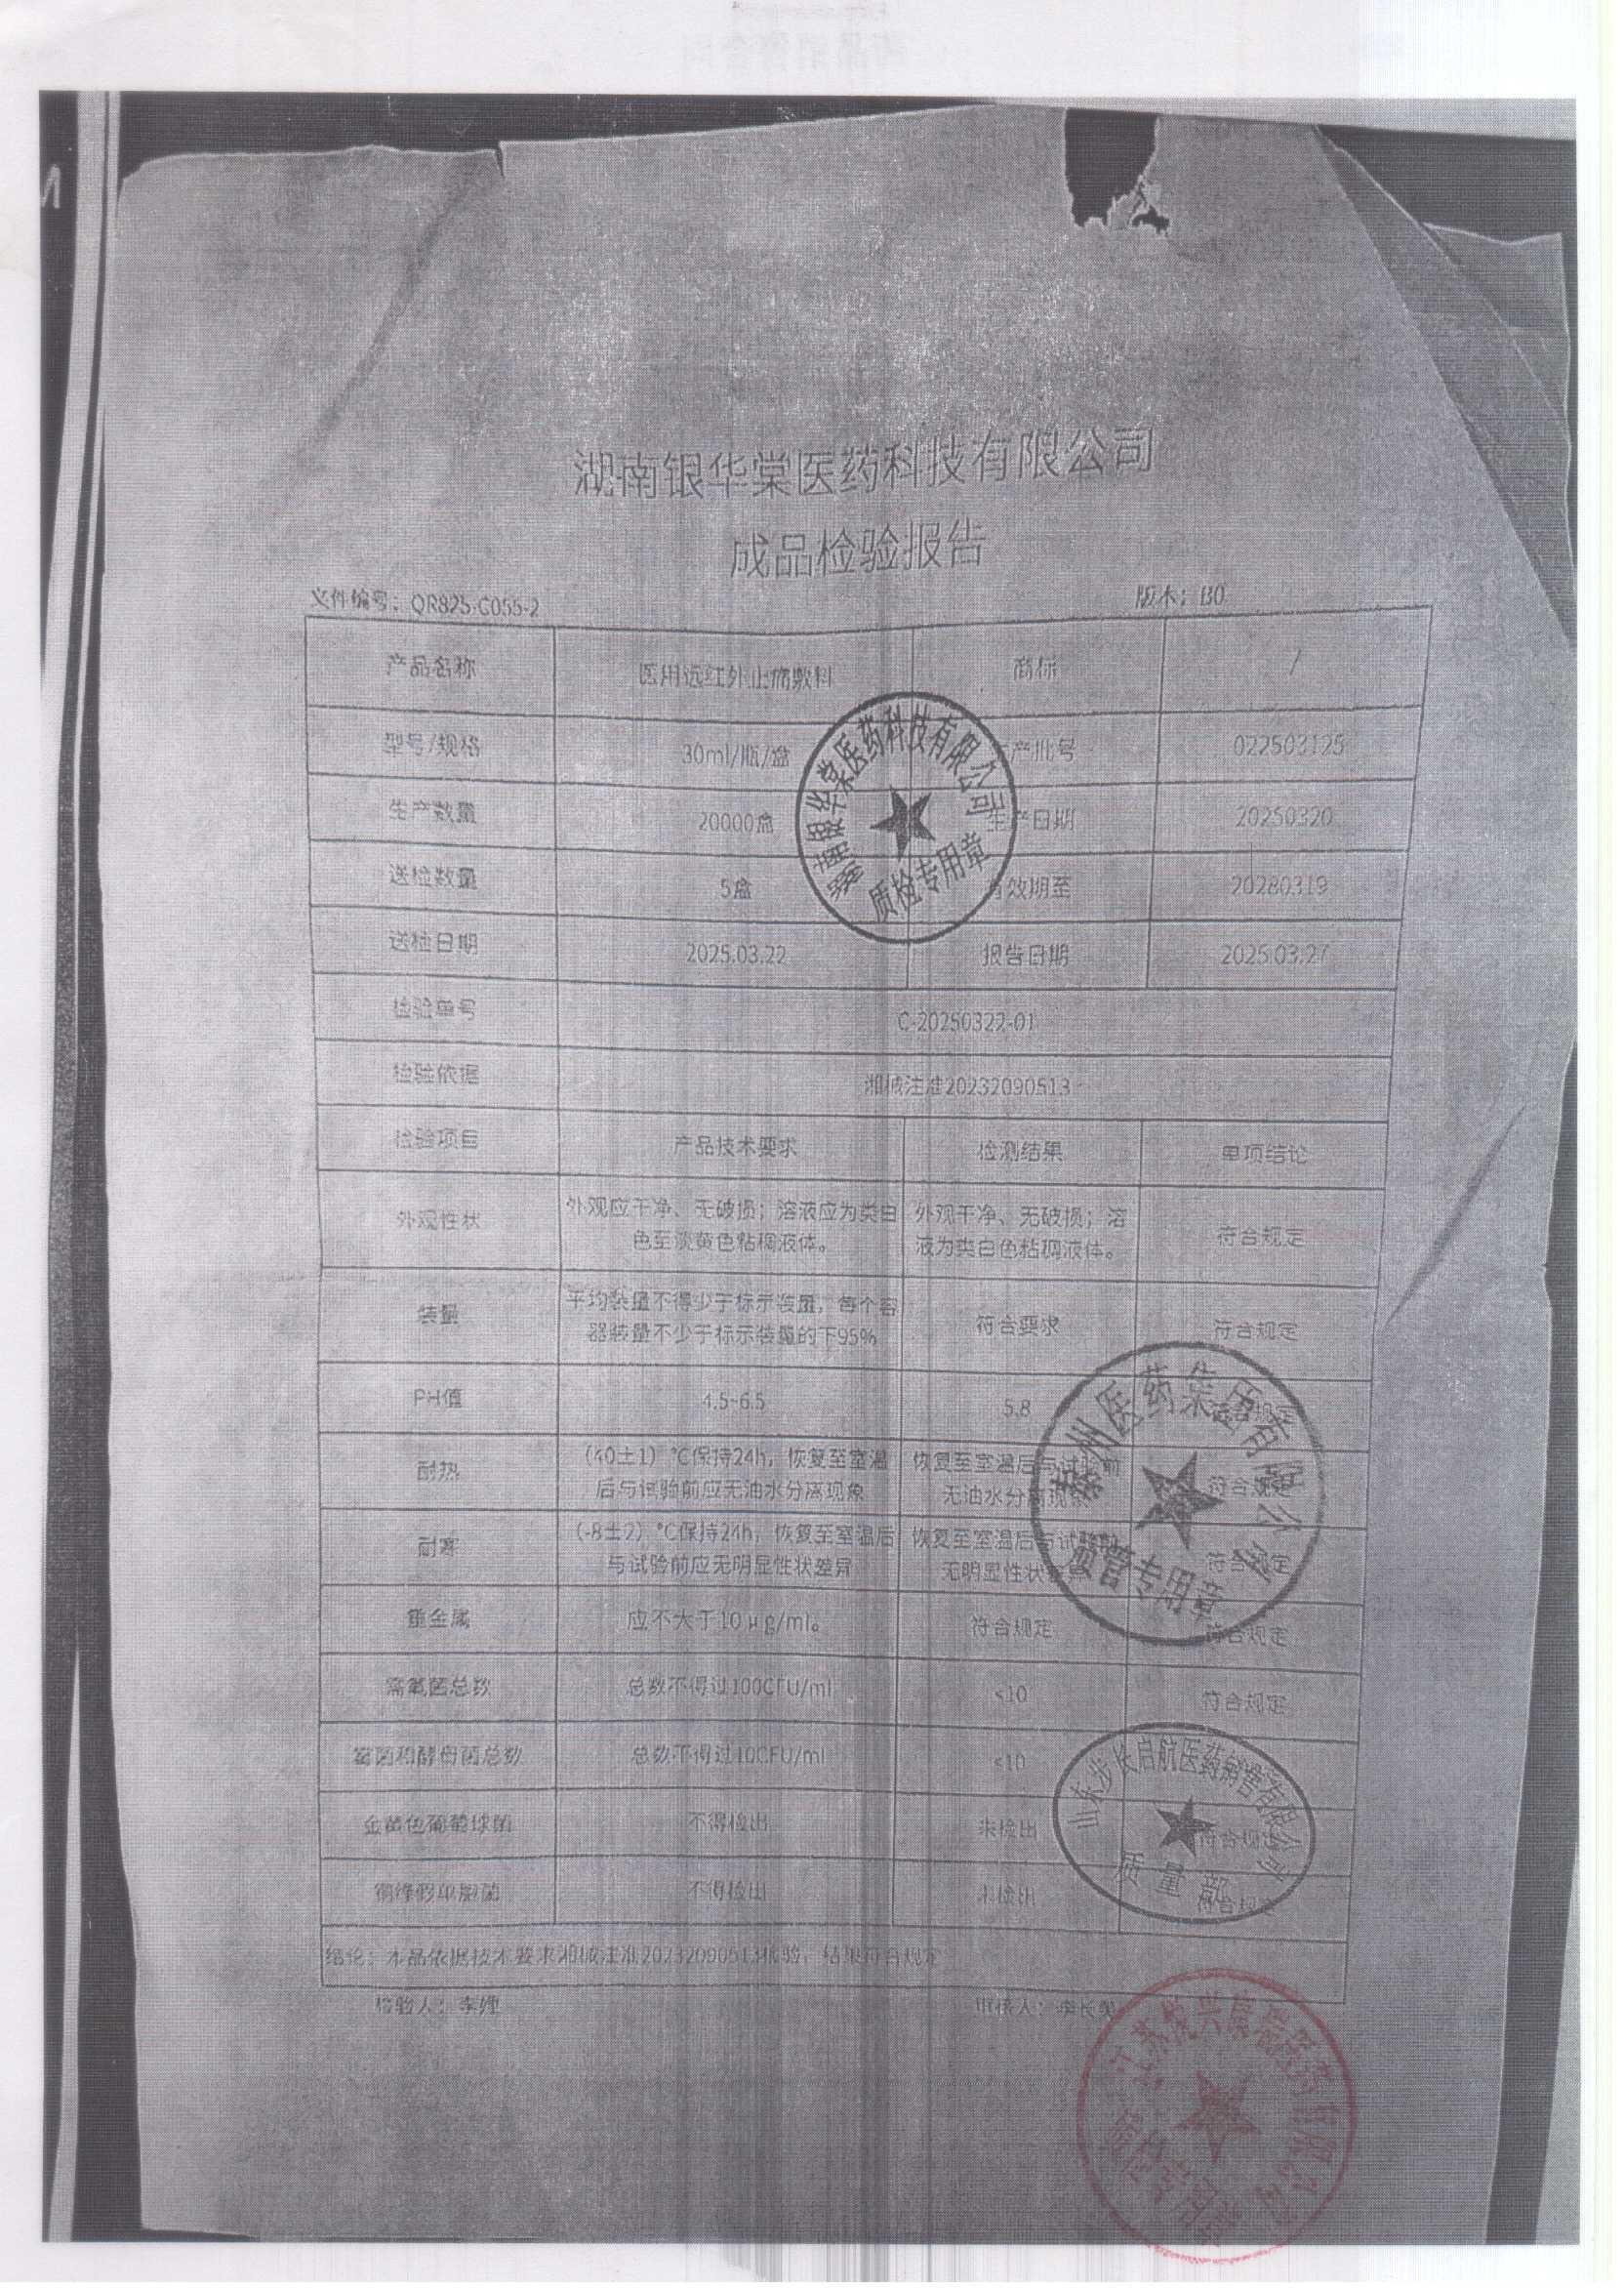 湖南银华棠医药科技有限公司
成品检验报告
文件编号：QR825-C055-2 版本：B0
产品名称 医用远红外止痛敷料 商标 /
型号/规格 30ml/瓶/盒 产批号 022503125
生产数量 20000盒 生产日期 20250320
送检数量 5盒 有效期至 20280319
送检日期 2025.03.22 报告日期 2025.03.27
检验单号 C-20250322-01
检验依据 湘械注准20232090513
检验项目 产品技术要求 检测结果 单项结论
外观性状 外观应干净、无破损；溶液应为类白 外观干净、无破损；溶 符合规定
色至淡黄色粘稠液体。 液为类白色粘稠液体。
装量 平均装量不得少于标示装量，每个容 符合要求 符合规定
器装量不少于标示装量的下95%
PH值 4.5-6.5 5.8 符合规定
耐热 （40±1）°C保持24h，恢复至室温 恢复至室温后与试验前 符合规定
后与试验前应无油水分离现象 无油水分离现象
耐寒 （-8±2）°C保持24h，恢复至室温后 恢复至室温后与试验 符合规定
与试验前应无明显性状差异 无明显性状
重金属 应不大于10μg/ml。 符合规定 符合规定
需氧菌总数 总数不得过100CFU/ml <10 符合规定
霉菌和酵母菌总数 总数不得过10CFU/ml <10
金黄色葡萄球菌 不得检出 未检出 符合规定
铜绿假单胞菌 不得检出 未检出 符合规定
结论：本品依据技术要求湘械注准20232090513检验，结果符合规定
检验人：李 审核人：
湖南银华棠医药科技有限公司
质检专用章
州医药集团有限公司
质管专用章
山东步长启航医药销售有限公司
质量部
江苏 医药有限公司
质管专用章